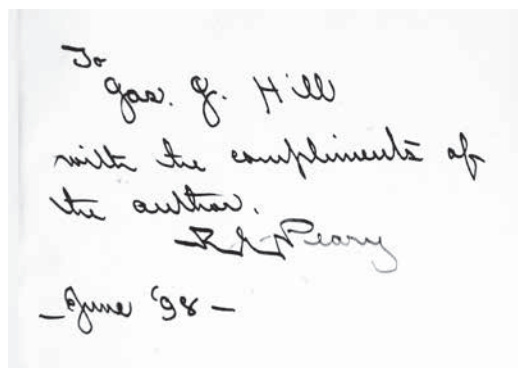 To
Jas. J. Hill
with the compliments of
the author.
R. E. Peary
- June '98 -